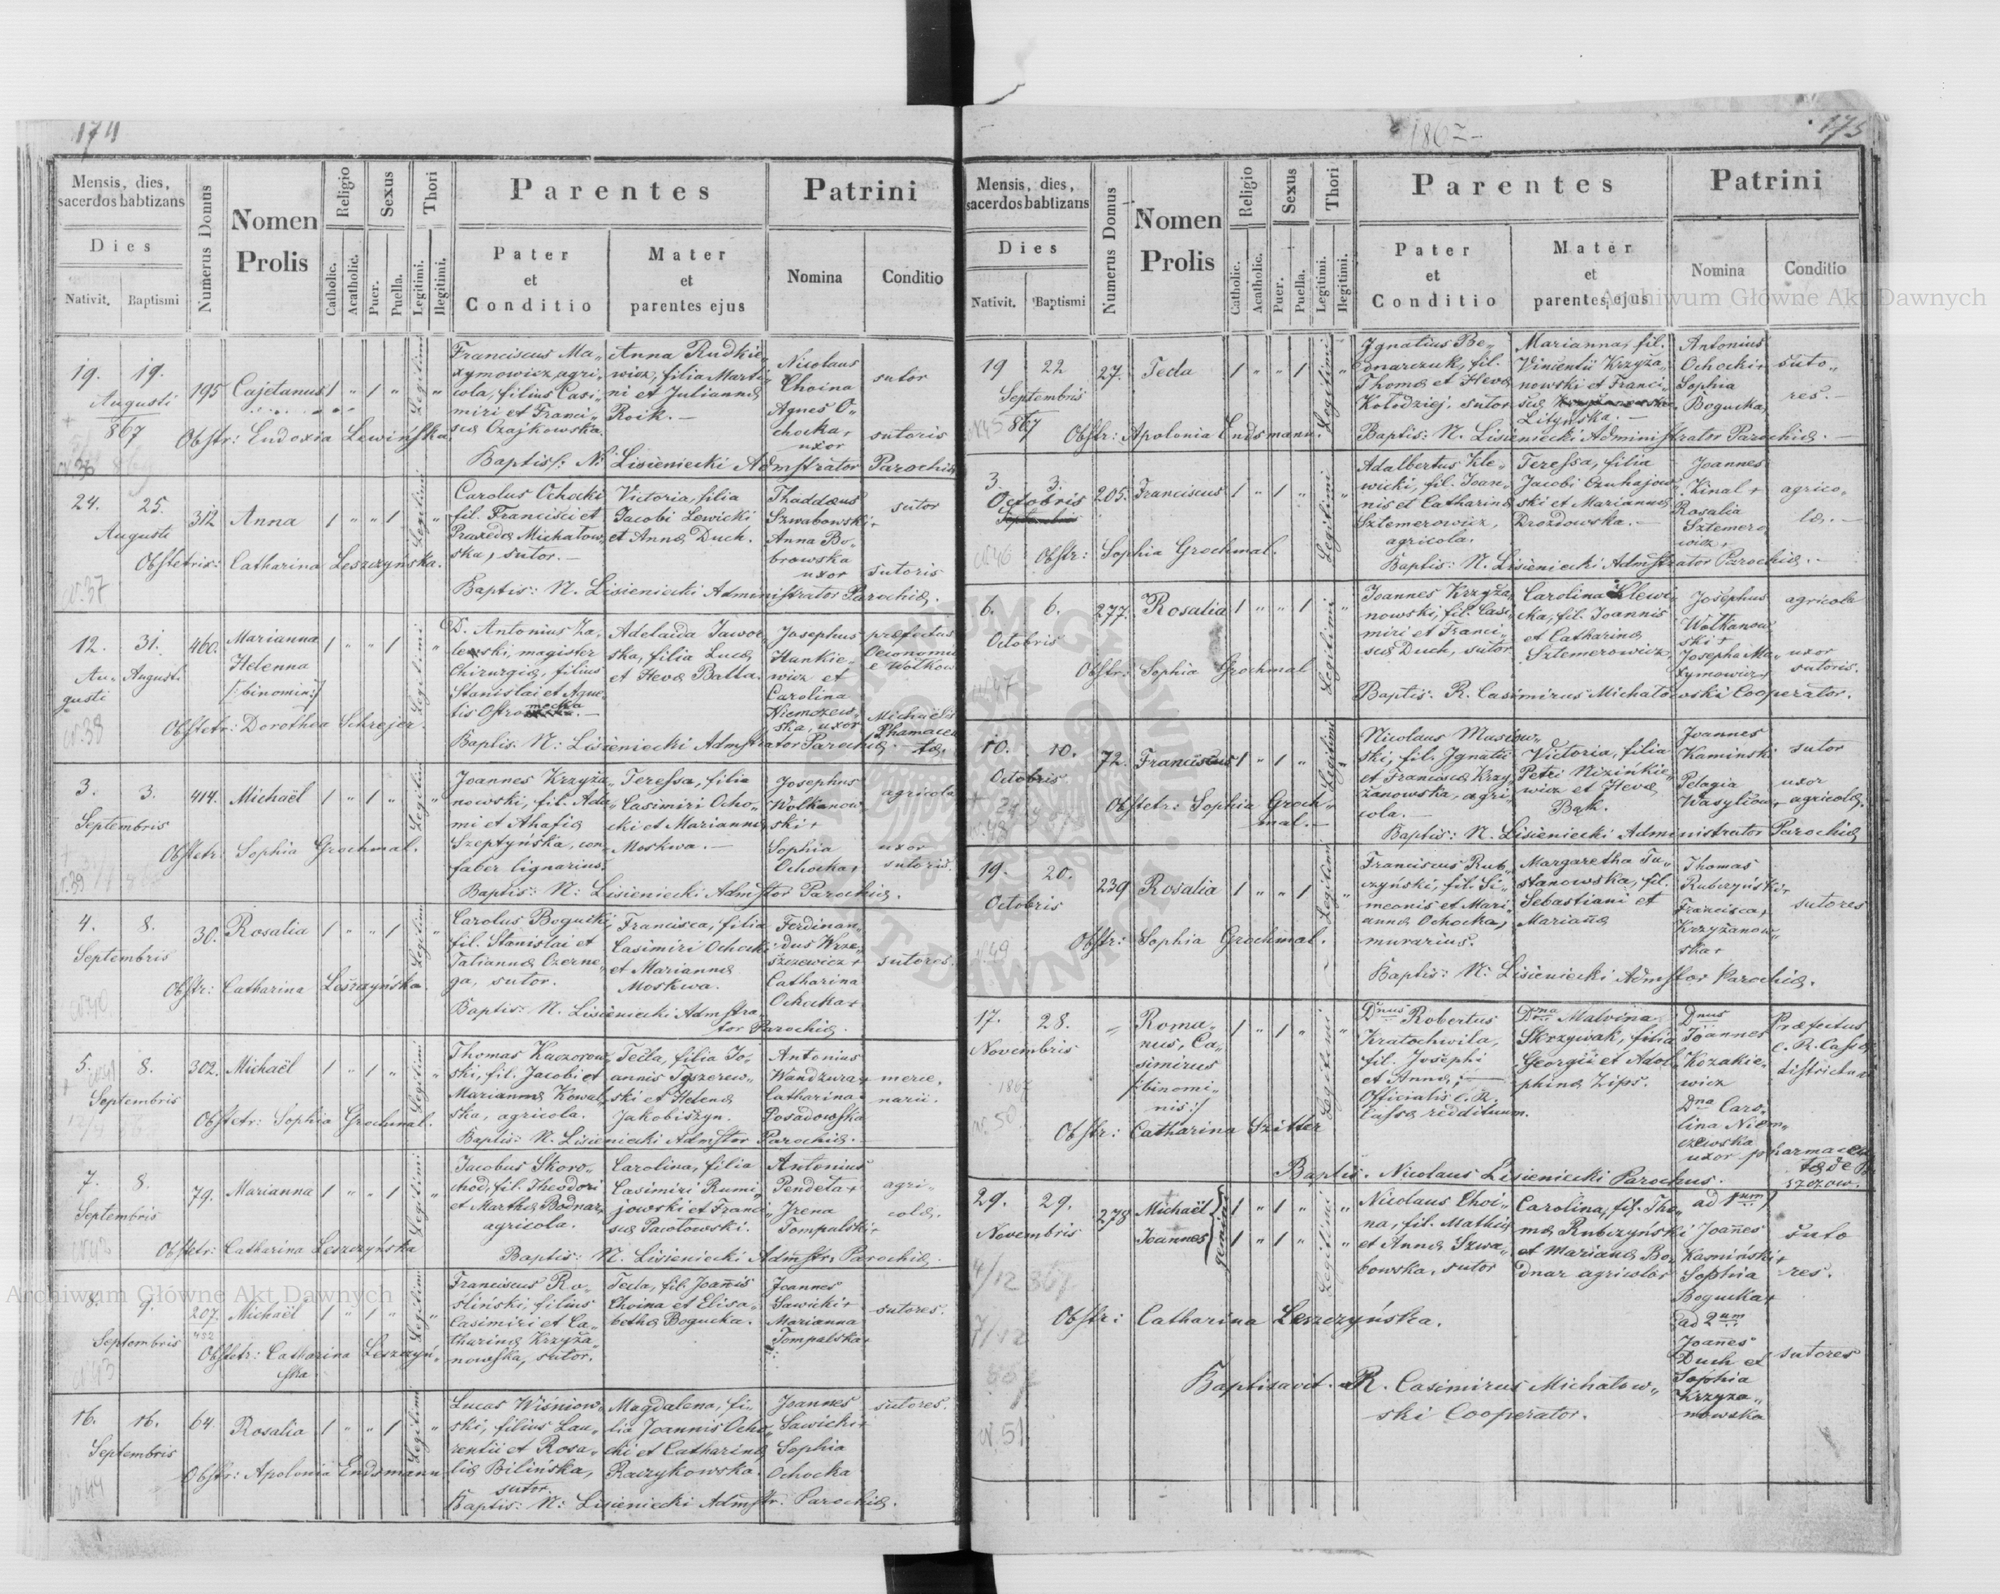 174
Mensis, dies, sacerdos babtizans
Dies
Nativit. Baptismi
Numerus Domus
Nomen Prolis
Religio
Catholic. Acatholic.
Sexus
Puer. Puella.
Thori
Legitimi. Ilegitimi.
Parentes
Pater et Conditio
Mater et parentes ejus
Patrini
Nomina
Conditio
19. 19. Augusti 867
195 Cajetanus 1 " 1 " Legitimi "
Franciscus Ma„
xymowicz, agri„
cola, filius Casi„
miri et Franci„
scæ Czajkowska.
Anna Rudkie„
wicz, filia Marti„
ni et Juliannæ
Roik. —
Nicolaus
Choina
Agnes O„
chocka,
uxor
sutor
sutoris
Obstr: Eudoxia Lewińska
Baptis: N: Lisieniecki Admstrator Parochiæ
24. 25. Augusti
312 Anna 1 " " 1 Legitimi "
Carolus Ochocki
fil. Francisci et
Praxedæ Michałow„
ska, sutor. —
Victoria, filia
Jacobi Lewicki
et Annæ Duch.
Thaddæus
Szwabowski +
Anna Bo„
browska
uxor
sutor
sutoris
Obstetris: Catharina Leszczyńska.
nr. 37
Baptis: N. Lisieniecki Administrator Parochiæ.
12. 31. Au„gusti August.
460. Marianna
Helenna
[: binomin :]
1 " " 1 Legitimi "
D. Antonius Za„
leski, magister
Chirurgiæ, filius
Stanislai et Agne„
tis Ostromęcka. —
Adelaida Jawor„
ska, filia Lucæ
et Hevæ Balta.
Josephus
Hankie„
wicz et
Carolina
Niemczew„
ska, uxor
præfectus
Oeconomiæ
e Wołkow
Michaëlis
Phamaceu„
tæ.
nr. 38
Obstetr: Dorothea Schrejer.
Baptis: N: Lisieniecki Admstrator Parochiæ.
3. 3. Septembris
414. Michaël 1 " 1 " Legitimi "
Joannes Krzyża„
nowski, fil. Ada„
mi et Ahafiæ
Szeptyńska, con„
faber lignarius.
Teressa, filia
Casimiri Ocho„
cki et Mariannæ
Moskwa. —
Josephus
Wołkanow„
ski +
Sophia
Ochocka,
agricola
uxor
sutoris.
nr. 39
Obstetr: Sophia Grochmal.
Baptis: N: Lisieniecki Admstor Parochiæ.
4. 8. Septembris
30. Rosalia 1 " " 1 Legitimi "
Carolus Bogucki,
fil. Stanislai et
Tatiannæ Czerne„
ga, sutor.
Francisca, filia
Casimiri Ochocki
et Mariannæ
Moskwa.
Ferdinan„
dus Krze„
szewicz +
Catharina
Ochocka +
sutores.
nr. 40
Obstr: Catharina Leszczyńska.
Baptis: N. Lisieniecki Admstra„
tor Parochiæ.
5. 8. Septembris
302. Michaël 1 " 1 " Legitimi "
Thomas Kaczorow„
ski, fil. Jacobi et
Mariannæ Kowal„
ska, agricola.
Tecla, filia Jo„
annis Tęszerew„
ski et Helenæ
Jakobiszyn.
Antonius
Wandzura +
Catharina
Posadowska
merce„
narii.
Obstetr: Sophia Grochmal.
Baptis: N. Lisieniecki Admstor Parochiæ.
7. 8. Septembris
79. Marianna 1 " " 1 Legitimi "
Jacobus Skoro„
chod, fil. Theodori
et Marthæ Bodnar,
agricola.
Carolina, filia
Casimiri Rumi„
jowski et Franci„
scæ Pacołowski.
Antonius
Pendeta +
Irena
Tompalski +
agri„
colæ.
nr. 42
Obstetr: Catharina Leszczyńska
Baptis: N. Lisieniecki Admstr. Parochiæ.
8. 9. Septembris
207. Michaël 1 " 1 " Legitimi "
Franciscus Ro„
śliński, filius
Casimiri et Ca„
tharinæ Krzyża„
nowska, sutor.
Tecla, fil. Joannis
Choina et Elisa„
bethæ Bogucka.
Joannes
Sawicki +
Marianna
Tompalska +
sutores.
nr. 43
Obstetr: Catharina Leszczyń„
ska.
16. 16. Septembris
64. Rosalia 1 " " 1 Legitimi "
Lucas Wiśniow„
ski, filius Lau„
rentii et Rosa„
liæ Bilińska,
sutor.
Magdalena, fi„
lia Joannis Ocho„
cki et Catharinæ
Raczykowska.
Joannes
Sawicki +
Sophia
Ochocka
sutores.
nr. 44
Obstr: Apolonia Endsmann
Baptis: N: Lisieniecki Admstr. Parochiæ.
1867 —
175
Mensis, dies, sacerdos babtizans
Dies
Nativit. Baptismi
Numerus Domus
Nomen Prolis
Religio
Catholic. Acatholic.
Sexus
Puer. Puella.
Thori
Legitimi. Ilegitimi.
Parentes
Pater et Conditio
Mater et parentes ejus
Patrini
Nomina
Conditio
19 22 Septembris 867
27. Tecla 1 " " 1 Legitimi "
Ignatius Be„
dnarczuk, fil.
Thomæ et Hevæ
Kołodziej, sutor
Marianna, fil.
Vincentii Krzyża„
nowski et Franci„
scæ
Lityńska. —
Antonius
Ochocki +
Sophia
Bogucka,
suto„
res. —
nr. 45
Obstr: Apolonia Endsmann.
Baptis: N. Lisieniecki Administrator Parochiæ. —
3. 3. Octobris
205. Franciscus 1 " 1 " Legitimi "
Adalbertus Kle„
wicki, fil. Joan„
nis et Catharinæ
Sztemerowicz,
agricola.
Teressa, filia
Jacobi Czuhajow„
ski et Mariannæ
Drozdowska. —
Joannes
Kinal +
Rosalia
Sztemero„
wicz +
agrico„
læ. —
nr. 46
Obstr: Sophia Grochmal.
Baptis: N. Lisieniecki Admstrator Parochiæ. —
6. 6. Octobris
277. Rosalia 1 " " 1 Legitimi "
Joannes Krzyża„
nowski, fil. Casi„
miri et Franci„
scæ Duch, sutor
Carolina Klewi„
cka, fil. Joannis
et Catharinæ
Sztemerowicz,
Josephus
Wołkanow„
ski +
Josepha Ma„
xymowicz
agricola
uxor
sutoris.
nr. 47
Obstr: Sophia Grochmal
Baptis: R. Casimirus Michałowski Cooperator.
10. 10. Octobris
72. Franciscus 1 " 1 " Legitimi "
Nicolaus Musiow„
ski, fil. Ignatii
et Franciscæ Krzy„
żanowska, agri„
cola. —
Victoria, filia
Petri Nizinkie„
wicz et Hevæ
Bąk.
Joannes
Kaminski
Pelagia
Wasyliow,
sutor
uxor
agricolæ.
48
Obstetr: Sophia Groch„
mal. —
Baptis: N. Lisieniecki Administrator Parochiæ
19. 20. Octobris
239 Rosalia 1 " " 1 Legitimi "
Franciscus Rub„
czyński, fil. Si„
meonis et Mari„
annæ Ochocka,
murarius.
Margaretha Tu„
stanowska, fil.
Sebastiani et
Mariañæ
Thomas
Rubczyński +
Francisca +
Krzyżanow„
ska +
sutores
49
Obstr: Sophia Grochmal.
Baptis: N: Lisieniecki Admstor Parochiæ.
17. 28. Novembris
" Roma„
nus, Ca„
simirus
[: binomi„
nis :]
1 " 1 " Legitimi "
Dnus Robertus
Kratochwila,
fil. Josephi
et Annæ, —
Officialis C. R.
Cassæ redituum.
Dna Malvina
Skrzywak, filia
Georgii et Adol„
phinæ Zips.
Dnus
Joannes
Kozakie„
wicz
Dna Caro„
lina Niem„
czewska
uxor pharmaceu„
Præfectus
C. R. Cassæ
districtuæ
tæ de B„
rzozow.
nr. 50
Obstr: Catharina Szitter
Baptis. Nicolaus Lisieniecki Parochus.
29. 29. Novembris
278 Michaël
Joannes
gemini
1 " 1 " Legitimi "
1 " 1 "
Nicolaus Choi„
na, fil. Mathiæ
et Annæ Szwa„
bowska, sutor
Carolina, fil. Tho„
mæ Rubczyński
et Mariannæ Bo„
dnar agricolæ
ad 1um
Joañes
Kamiński +
Sophia
Bogucka +
suto
res.
ad 2um
Joañes
Duch et
Sophia
Krzyża„
nowska
sutores
4/12 867
7/12
867
nr. 51
Obstr: Catharina Leszczyńska.
Baptisavit. R. Casimirus Michałow„
ski Cooperator.
Archiwum Główne Akt Dawnych
Archiwum Główne Akt Dawnych